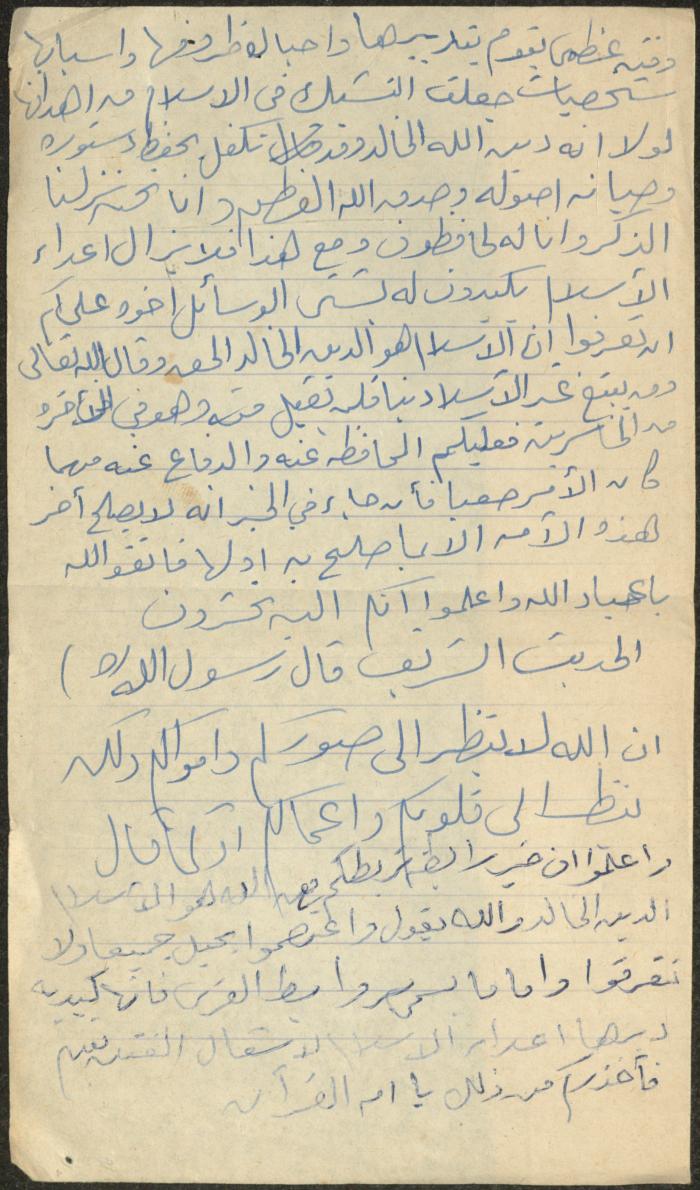 وفتنه عظمى يقوم بتدبيرها واحبا لظروفها واسبابها
شخصيات جعلت التشكك في الاسلام من اهدافها
لولا انه دين الله الخالد وقد تكفل بحفظ دستوره
وصيانه اصوله وصدق الله العظيم وانا نحن نزلنا
الذكر وانا له لحافظون ومع هذا فلا يزال اعداء
الأسلام يكيدون له بشتى الوسائل اخوه عليكم
ان تعرفوا ان الآسلام هو الدين الخالد الحق وقال الله تعالى
ومن يبتغ غير الآسلام دينا فلن تقبل منه وهو في الآخره
من الخاسرين فعليكم المحافظه عنه والدفاع عنه مهما
كان الأمر صعبا فأن جاء في الخبر انه لا يصلح أخر
لهذه الآمه الا بما صلح به اولها فاتقو الله
ياعباد الله واعلموا انكم اليه تحشرون
الحديث الشريف قال رسول الله (ص)
ان الله لا ينظر الى صوركم واموالكم ولكن
ينظر الى قلوبكم واعمالكم او كما قال
واعلموا ان خير رابطه تربطكم مع الله هو الاسلام
الدين الخالد والله يقول واعتصموا بحبل جميعا ولا
تتفرقوا واما ما يسمى بروابط القرى فانها كيديه
دبرها اعداء الاسلام لاشعال الفتن بينكم
فأحذركم من ذلك يا امه القرآن